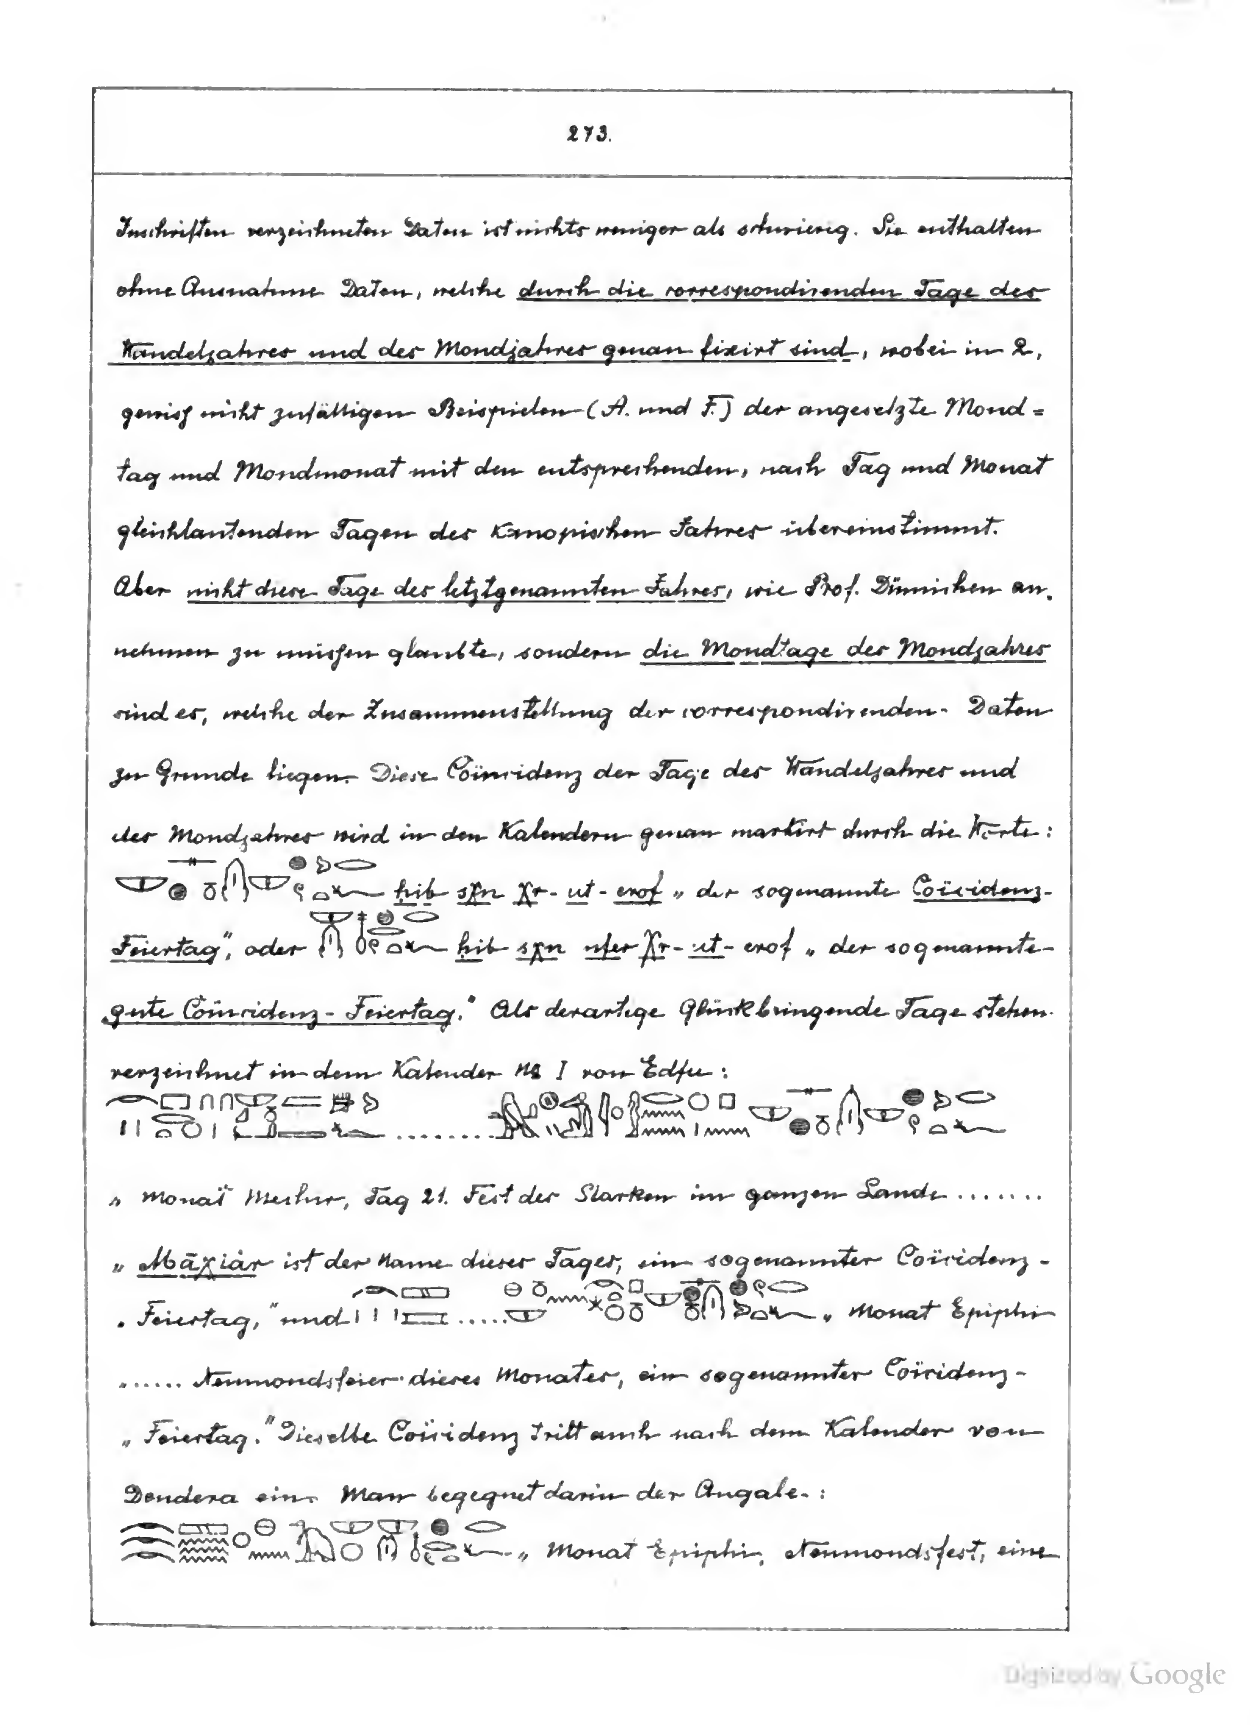 273.
Inschriften verzeichneten Daten ist nichts weniger als schwierig. Sie enthalten
ohne Ausnahme Daten, welche durch die correspondirenden Tage des
Wandeljahres und des Mondjahres genau fixirt sind, wobei in 2,
gewiß nicht zufälligen Beispielen (A. und F.) der angesetzte Mond=
tag und Mondmonat mit den entsprechenden, nach Tag und Monat
gleichlautenden Tagen des Kanopischen Jahres übereinstimmt.
Aber nicht diese Tage des letztgenannten Jahres, wie Prof. Dümichen an-
nehmen zu müssen glaubte, sondern die Mondtage des Mondjahres
sind es, welche der Zusammenstellung der correspondirenden Daten
zu Grunde liegen. Diese Coïncidenz der Tage des Wandeljahres und
des Mondjahres wird in den Kalendern genau markirt durch die Worte:
ḥib sχn χr-ut-erof „der sogenannte Coïncidenz-
Feiertag", oder ḥib sχn nfer χr-ut-erof „der sogenannte
gute Coïncidenz-Feiertag." Als derartige Glückbringende Tage stehen
verzeichnet in dem Kalender № I von Edfu:
„Monat Mechir, Tag 21. Fest des Starken im ganzen Lande .......
„Māχiār ist der Name dieses Tages, ein sogenannter Coïncidenz-
„Feiertag," und ..... „Monat Epiphi
„..... Neumondsfeier dieses Monates, ein sogenannter Coïncidenz-
„Feiertag." Dieselbe Coïncidenz tritt auch nach dem Kalender von
Dendera ein. Man begegnet darin der Angabe:
„Monat Epiphi, Neumondsfest, eine
Digitized by Google